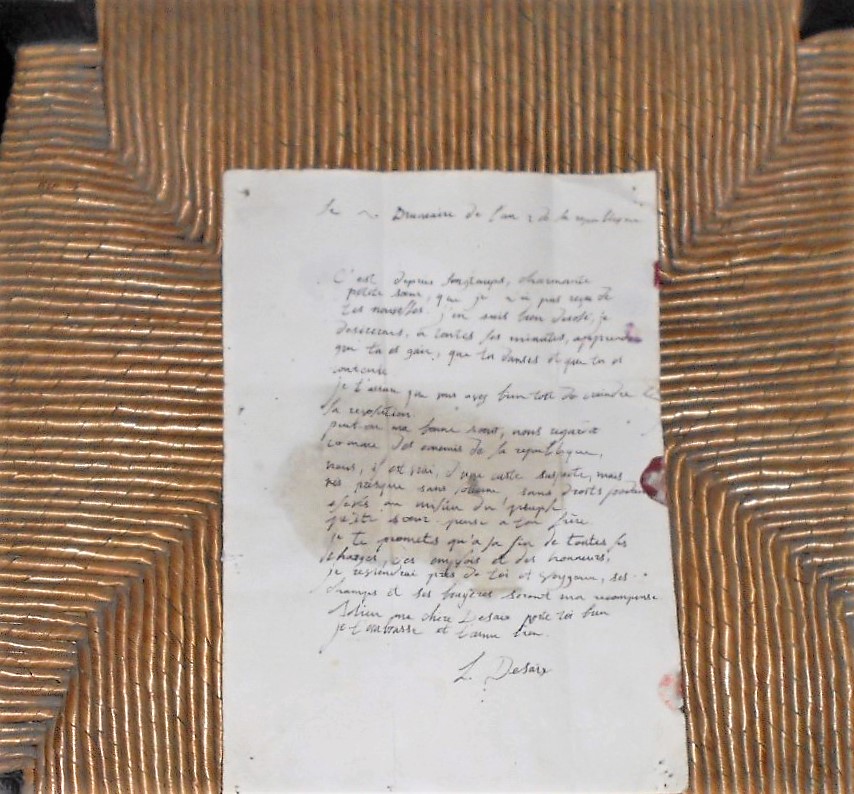 le Brumaire de l'an 2 de la republique
C'est depuis longtemps, charmante
petite sœur, que je n'ai pas reçu de
tes nouvelles. j'en suis bien desolé, je
desirerais, a toutes les minutes, apprendre
que tu es gaie, que tu danses et que tu es
contente
je t'assure que vous avez bien tort de craindre
la revolution
peut on ma bonne sœur, nous regarder
comme des ennemis de la republique,
nous, il est vrai, d'une caste suspecte, mais
nés presque sans fortune sans droits
elevés au milieu du peuple
petite sœur pense a ton frère
je te promets qu'a la fin de toutes les
charges, des emplois et des honneurs,
je reviendrai près de toi et ses
champs et ses bruyères seront ma recompense
Adieu ma chere Desaix porte toi bien
je t'embrasse et t'aime bien.
L. Desaix